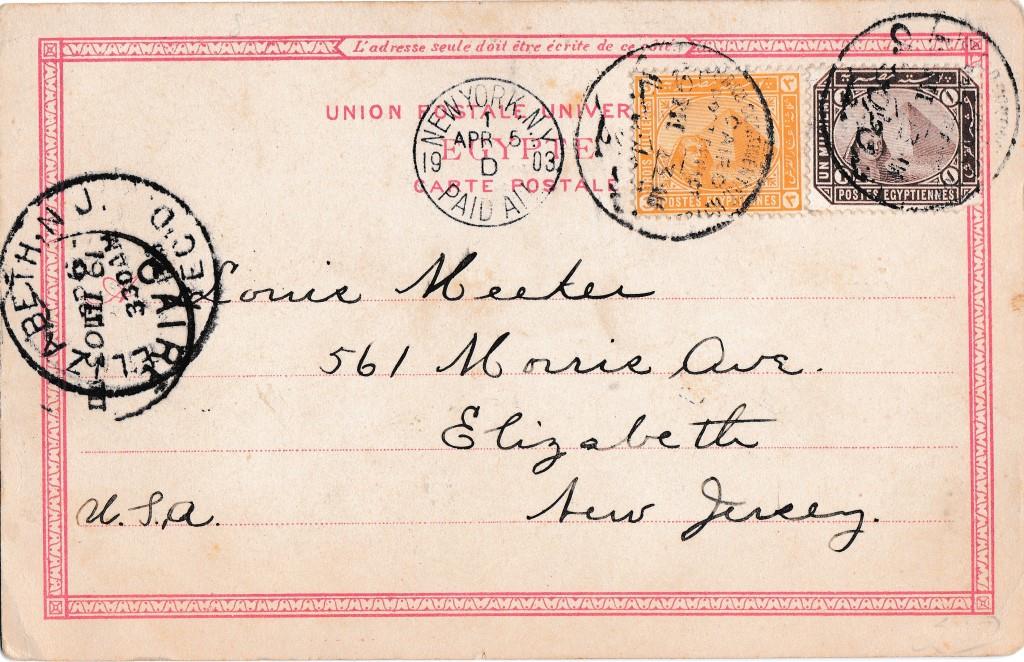 L'adresse seule doit être écrite de ce côté
UNION POSTALE UNIVER
EGYPTE
CARTE POSTALE
NEW YORK, N.Y.
1
APR 5
D
19 03
PAID ALL
POSTES EGYPTIENNES
UN MILL
POSTES EGYPTIENNES
ABETH, N.J.
REC'D.
CAIR
Louis Meeker
561 Morris Ave.
Elizabeth
New Jersey.
U.S.A.